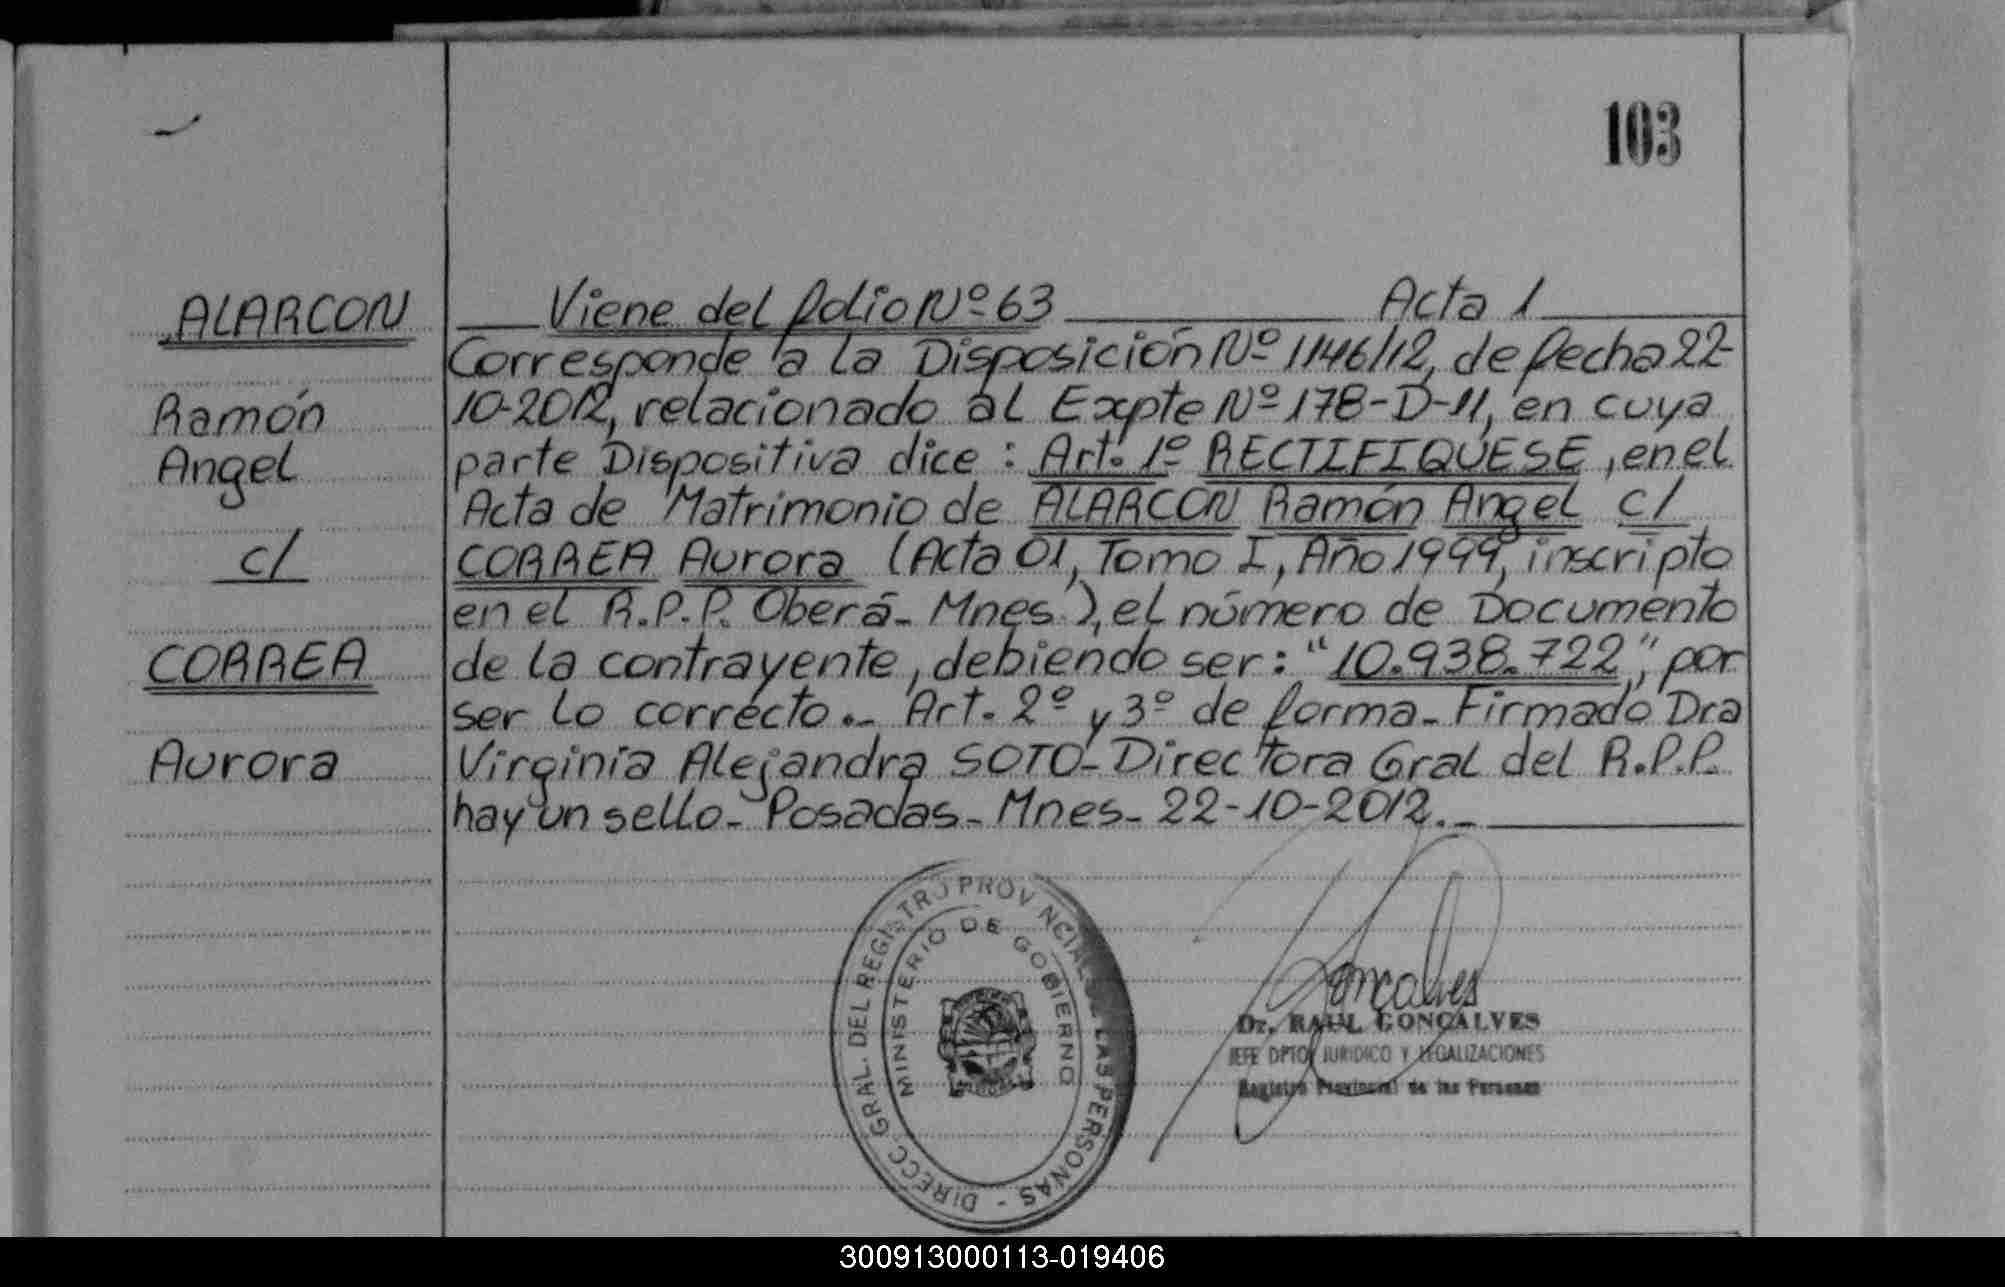 103
ALARCON
Ramón
Angel
c/
CORREA
Aurora
Viene del folio Nº 63 Acta 1
Corresponde a la Disposición Nº 1146/12, de fecha 22-
10-2012, relacionado al Expte Nº 178-D-11, en cuya
parte Dispositiva dice: Art. 1º RECTIFIQUESE, en el
Acta de Matrimonio de ALARCON Ramón Angel c/
CORREA Aurora (Acta 01, Tomo I, Año 1999, inscripto
en el R.P.P. Oberá - Mnes.), el número de Documento
de la contrayente, debiendo ser: "10.938.722", por
ser lo correcto.- Art. 2º y 3º de forma - Firmado Dra
Virginia Alejandra SOTO - Directora Gral del R.P.P.
hay un sello - Posadas - Mnes - 22-10-2012.-
DIRECC GRAL. DEL REGISTRO PROVINCIAL DE LAS PERSONAS -
MINISTERIO DE GOBIERNO
Goncalves
Dr. RAUL GONCALVES
JEFE DPTO JURIDICO Y LEGALIZACIONES
Registro Provincial de las Personas
300913000113-019406